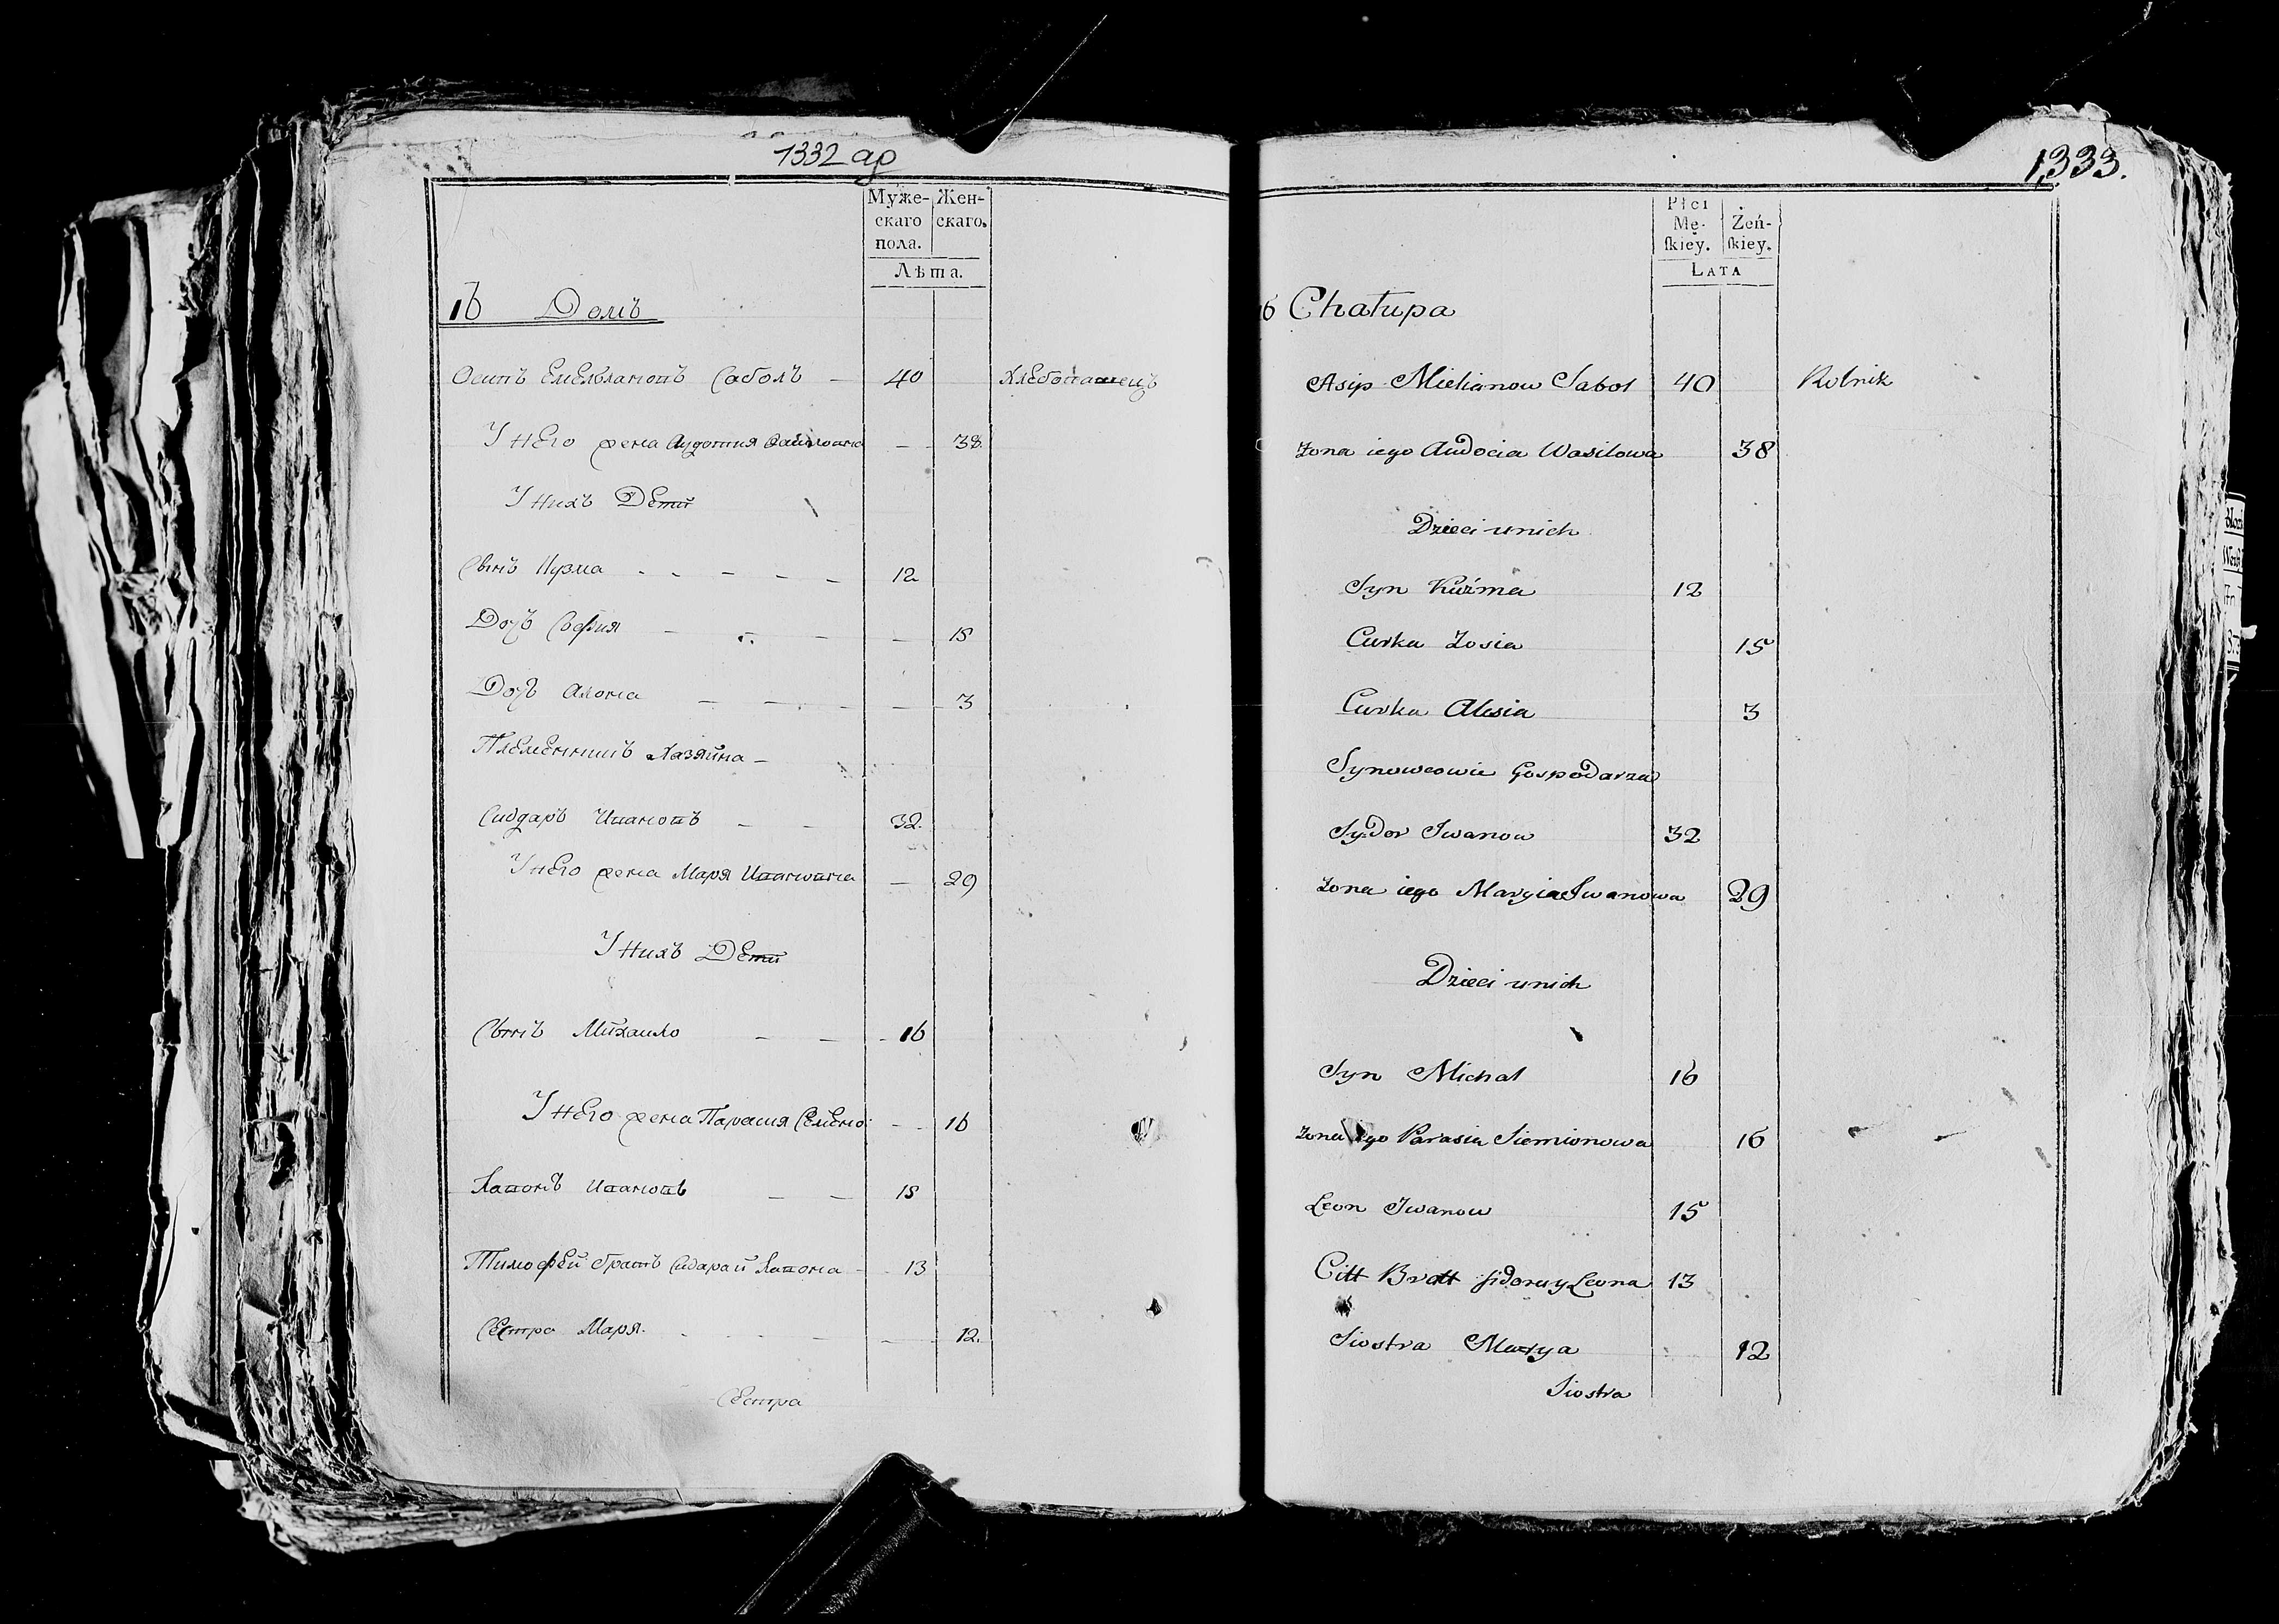 1332 ар
Муже-
скаго
пола.
Жен-
скаго.
Лѣта.
16 Домъ
Осипъ Емельяновъ Саболъ 40 Хлебопашецъ
У него жена Аудотия Василовна 38
У нихъ Дети
Сынъ Кузма 12
Дочь София 15
Дочь Алена 3
Племенникъ Хазяина
Сидаръ Ивановъ 32.
У него жена Маря Ивановна 29
У нихъ Дети
Сынъ Михаило 16
У него жена Парасия Семено 16
Лавонъ Ивановъ 15
Тимофей братъ Сидара и Лавона 13
Сестра Маря. 12.
Сестра
1333.
Płci
Mę-
ſkiey.
Żeń-
ſkiey.
LATA
6 Chałupa
Asip Mielianow Sabol 40 Rolnik
Zona iego Audocia Wasilowa 38
Dzieci u nich
Syn Kuźma 12
Curka Zosia 15
Curka Alesia 3
Synowcowie Gospodarza
Sydor Iwanow 32
Zona iego Maryia Iwanowa 29
Dzieci u nich
Syn Michał 16
Zona iego Parasia Siemionowa 16
Leon Iwanow 15
Citt Bratt Sidora y Leona 13
Siostra Marya 12
Siostra